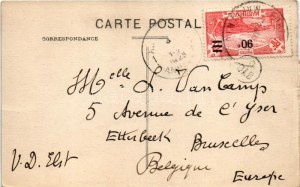 CARTE POSTALE
CORRESPONDANCE
90
Melle L. Van Camp
5 Avenue de l'Yser
Etterbeek Bruxelles
V.D. Elst
Belgique
Europe